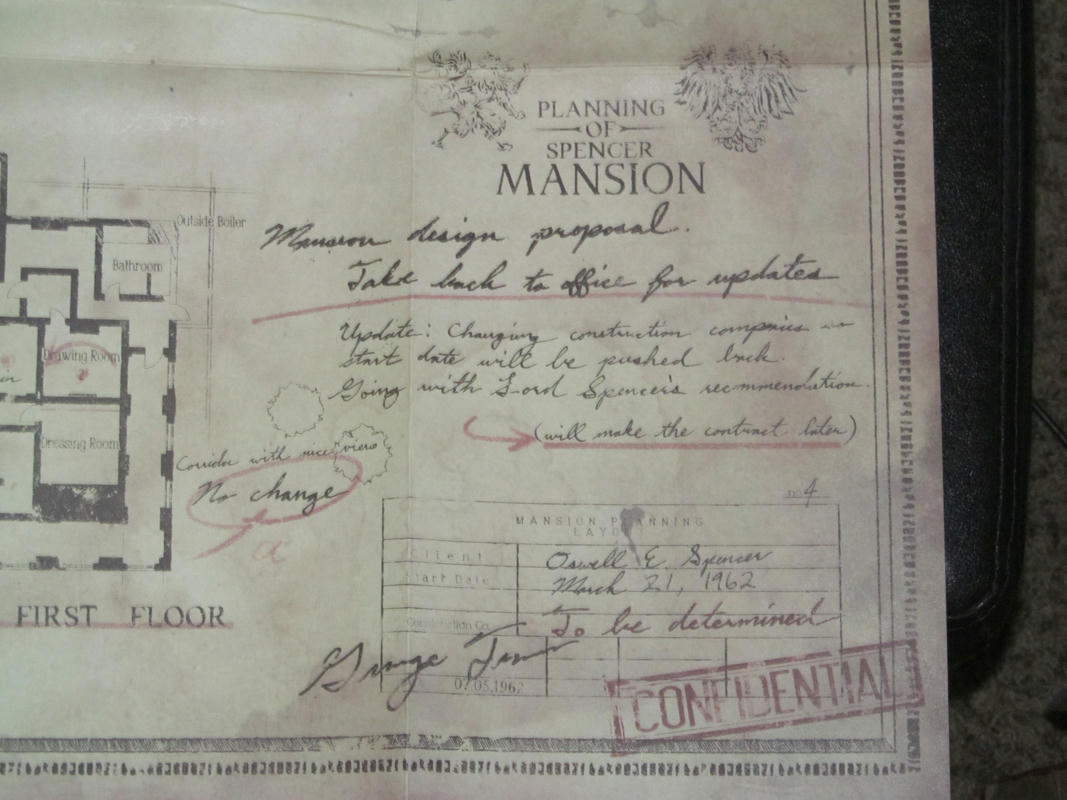 PLANNING
OF
SPENCER
MANSION
Outside Boiler
Mansion design proposal.
Bathroom
Take back to office for updates
Update: Changing construction companies so
start date will be pushed back.
Drawing Room
Going with Lord Spencer's recommendation.
(will make the contract later)
Dressing Room
Corridor with nice view
No change
no 4
MANSION PLANNING
LAYO
Client
Oswell E. Spencer
Start Date
March 21, 1962
Construction Co.
To be determined
FIRST FLOOR
George
07.05.1962
CONFIDENTIAL